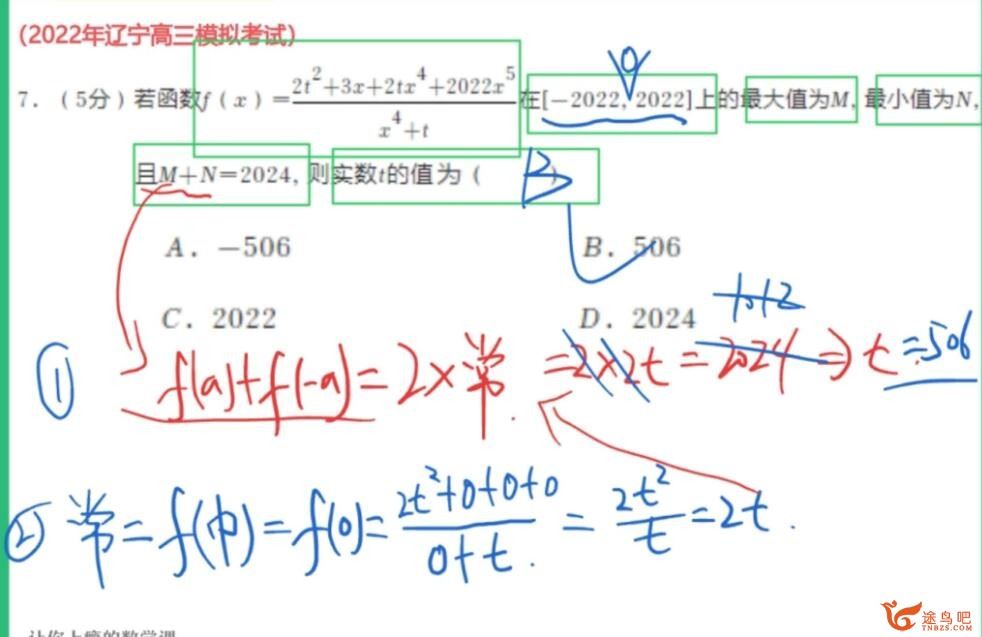 (2022年辽宁高三模拟考试)
7．(5分)若函数f(x)=\frac{2t^2+3x+2tx^4+2022x^5}{x^4+t}在[-2022, 2022]上的最大值为M, 最小值为N,
0
且M+N=2024, 则实数t的值为( B )
A．-506
B．506
C．2022
D．2024
1012
① f(a)+f(-a)=2×常 =2×2t=2024⇒t=506
② 常=f(中)=f(0)=\frac{2t^2+0+0+0}{0+t}=\frac{2t^2}{t}=2t.
途鸟吧
TNBZS.COM